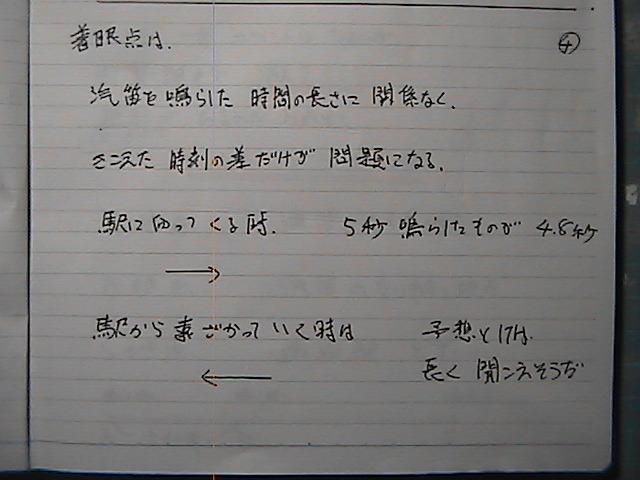 着眼点は. ④
汽笛を鳴らした 時間の長さに 関係なく.
きこえた 時刻の差だけが 問題になる.
駅に向ってくる時. 5秒 鳴らしたものが 4.8秒
→
駅から遠ざかっていく時は 予想としては
← 長く 聞こえそうだ